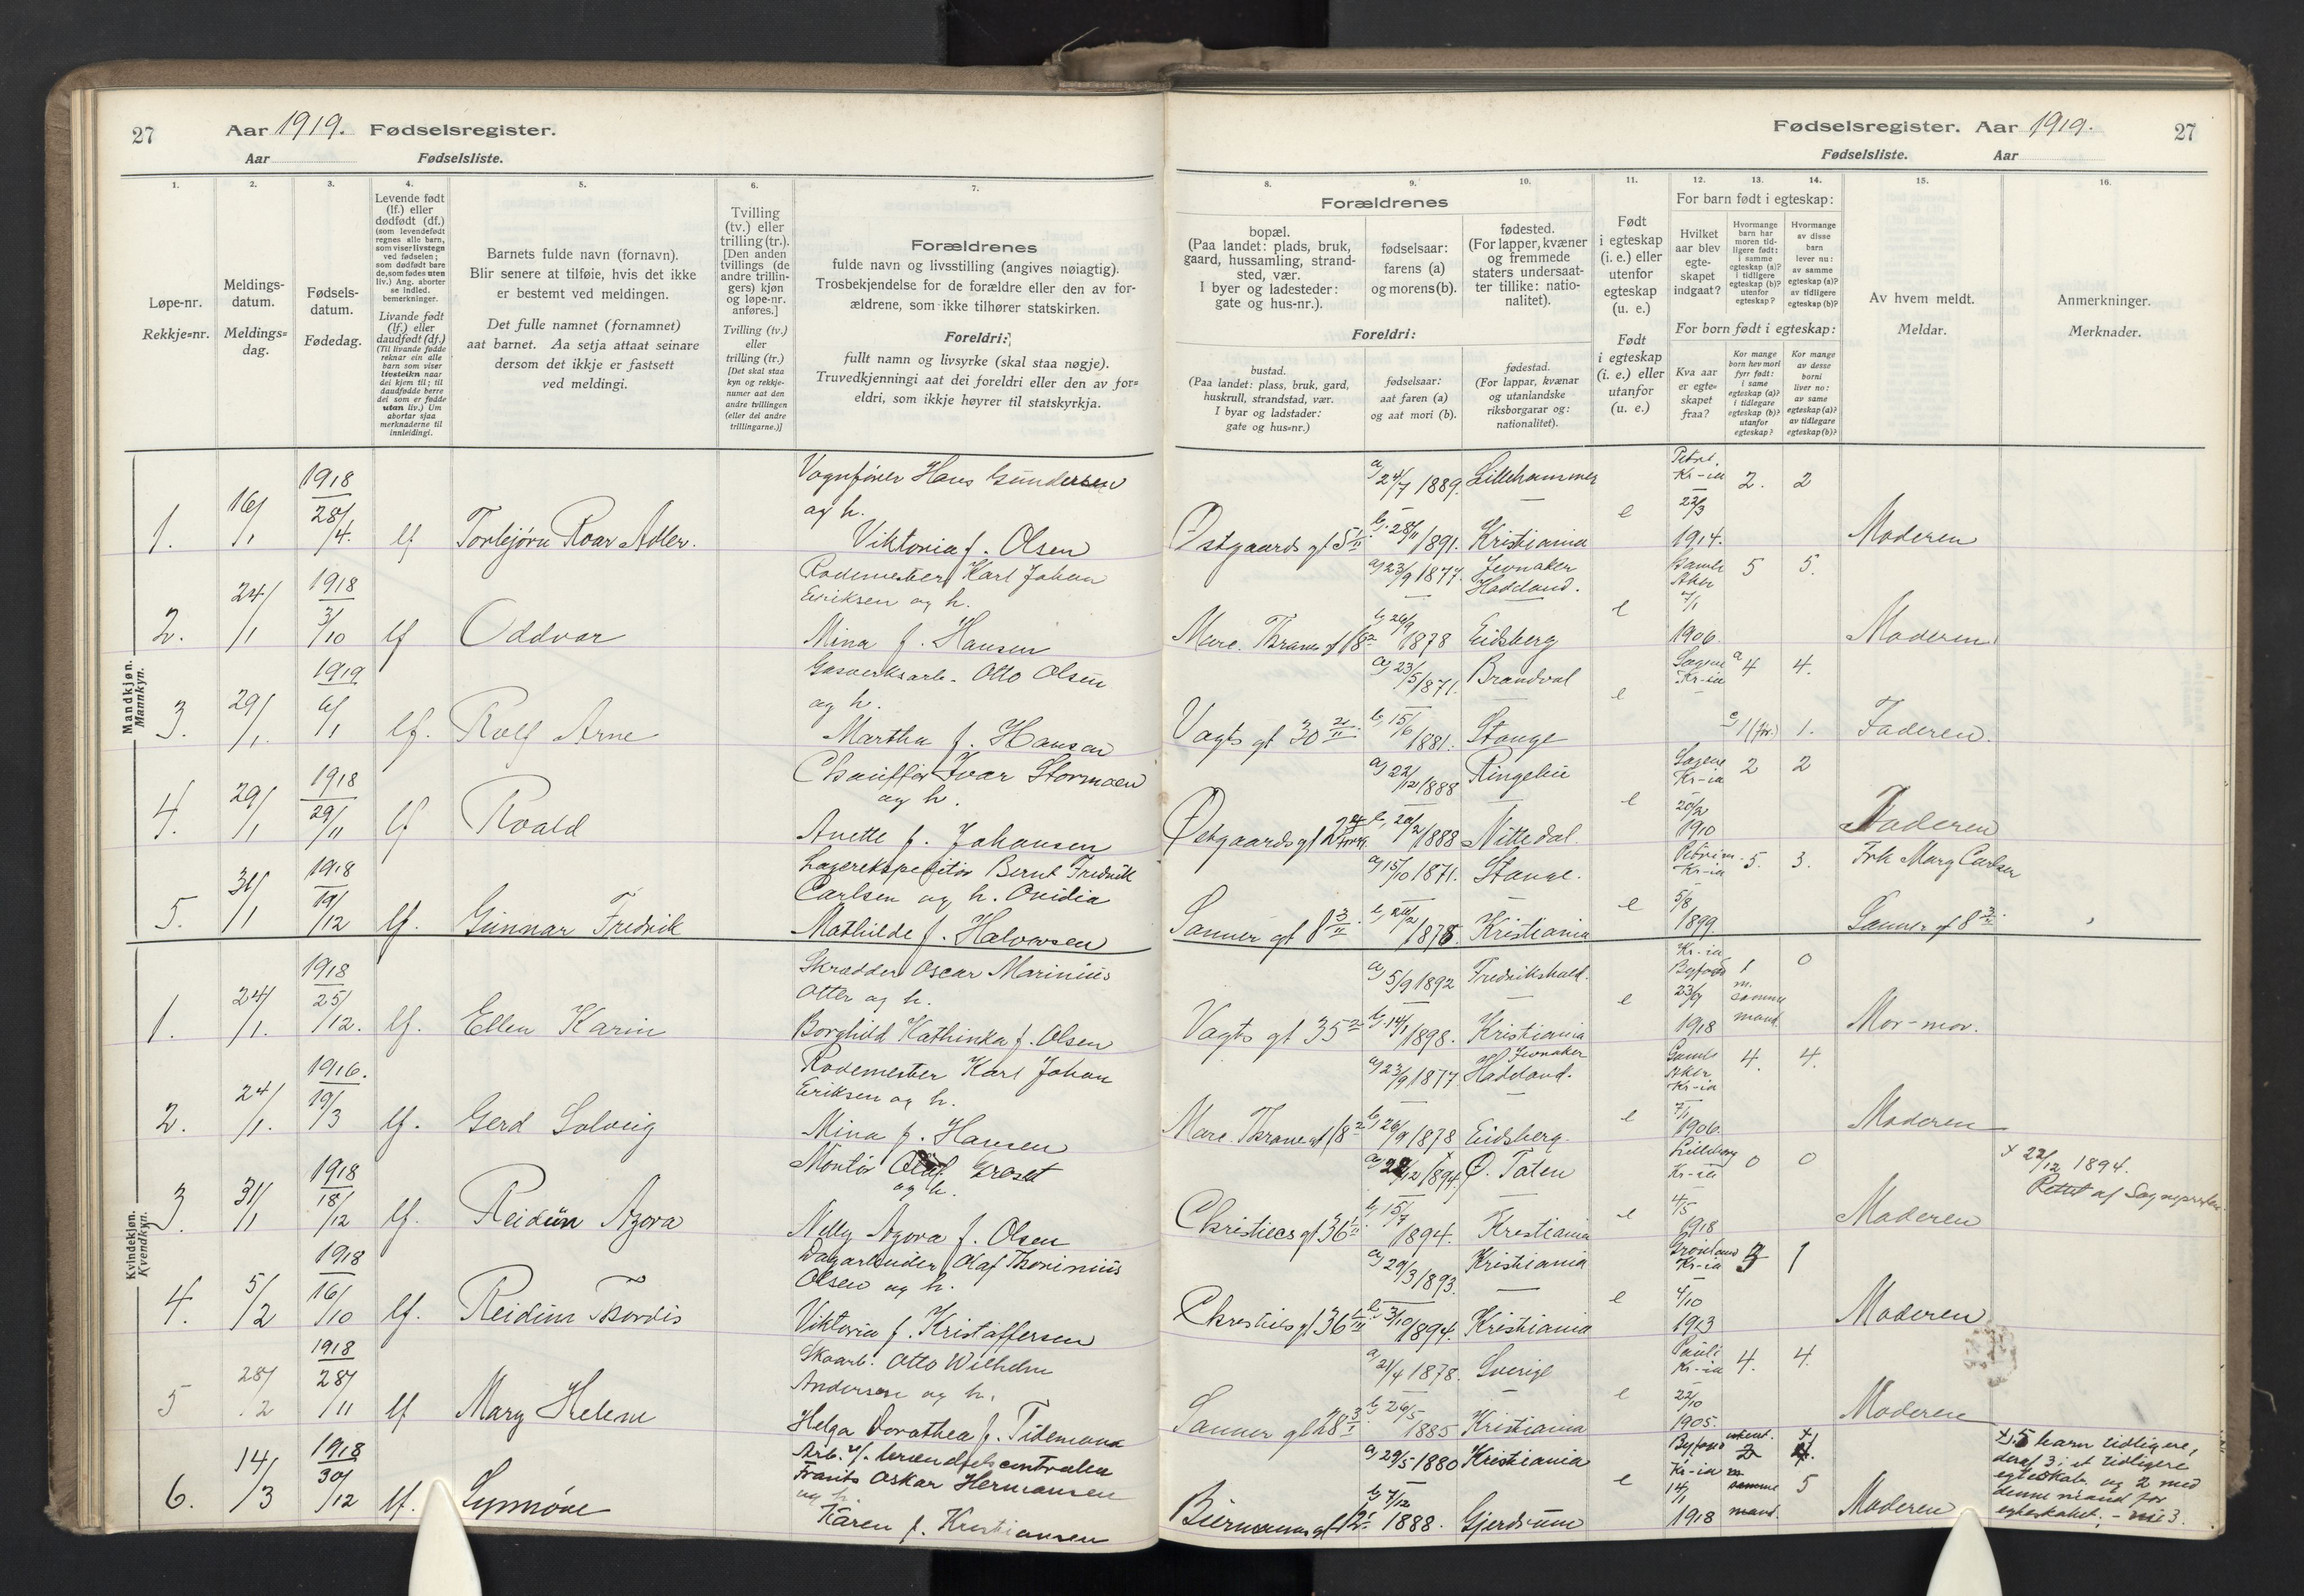 27
Aar 1919. Fødselsregister.
Aar
Fødselsliste.
Fødselsregister. Aar 1919.
27
Fødselsliste.
Aar
1.
Løpe-nr.
Rekkje=nr.
2.
Meldings-
datum.
Meldings=
dag.
3.
Fødsels-
datum.
Fødedag.
4.
Levende født
(lf.) eller
dødfødt (df.)
(som levendefødt
regnes alle barn,
som viser livstegn
ved fødselen;
som dødfødt bare
de, som fødes uten
liv.) Ang. aborter
se indled.
bemerkninger.
Livande født
(lf.) eller
daudfødt (df.)
(Til livande fødde
reknar ein alle
barn som viser
livsteikn naar
dei kjem til; til
daudfødde berre
dei som er fødde
utan liv.) Um
abortar sjaa
merknaderne til
innleidingi.
5.
Barnets fulde navn (fornavn).
Blir senere at tilføie, hvis det ikke
er bestemt ved meldingen.
Det fulle namnet (fornamnet)
aat barnet. Aa setja attaat seinare
dersom det ikkje er fastsett
ved meldingi.
6.
Tvilling
(tv.) eller
trilling (tr.).
[Den anden
tvillings (de
andre trillin-
gers) kjøn
og løpe-nr.
anføres.]
Tvilling (tv.)
eller
trilling (tr.)
[Det skal staa
kyn og rekkje-
numer aat den
andre tvillingen
(eller dei andre
trillingarne.)]
7.
Forældrenes
fulde navn og livsstilling (angives nøiagtig).
Trosbekjendelse for de forældre eller den av for-
ældrene, som ikke tilhører statskirken.
Foreldri:
fullt namn og livsyrke (skal staa nøgje).
Truvedkjenningi aat dei foreldri eller den av for=
eldri, som ikkje høyrer til statskyrkja.
8.
Forældrenes
bopæl.
(Paa landet: plads, bruk,
gaard, hussamling, strand-
sted, vær.
I byer og ladesteder:
gate og hus-nr.).
Foreldri:
bustad.
(Paa landet: plass, bruk, gard,
huskrull, strandstad, vær.
I byar og ladstader:
gate og hus=nr.)
9.
fødselsaar:
farens (a)
og morens (b).
fødselsaar:
aat faren (a)
og aat mori (b).
10.
fødested.
(For lapper, kvæner
og fremmede
staters undersaat-
ter tillike: natio-
nalitet).
fødestad.
(For lappar, kvænar
og utanlandske
riksborgarar og:
nationalitet).
11.
Født
i egteskap
(i. e.) eller
utenfor
egteskap
(u. e.)
Født
i egteskap
(i. e.) eller
utanfor
(u. e.)
12.
For barn født i egteskap:
Hvilket
aar blev
egte-
skapet
indgaat?
For born født i egteskap:
Kva aar
er egte=
skapet
fraa?
13.
Hvormange
barn har
moren tid-
ligere født:
i samme
egteskap (a)?
i tidligere
egteskap (b)?
utenfor
egteskap?
Kor mange
born hev mori
fyrr født:
i same
egteskap (a)?
i tidlegare
egteskap (b)?
utanfor
egteskap?
14.
Hvormange
av disse
barn
lever nu:
av samme
egteskap (a)?
av tidligere
egteskap (b)?
Kor mange
av desse
borni
liver no:
av same
egteskap (a)?
av tidlegare
egteskap (b)?
15.
Av hvem meldt.
Meldar.
16.
Anmerkninger.
Merknader.
Mandkjøn.
Mannkyn.
1. 16/1 1918 28/4. lf Torbjørn Roar Adler.
Vognfører Hans Gundersen
og h.
Viktoria f. Olsen
Østgaards gt 5 I/II
a, 24/7 1889. Lillehammer
b. 28/11 1891. Kristiania
e
Petri.
Kr-ia
22/3
1914.
2. 2
Moderen
2. 24/1 1918 3/10 lf Oddvar
Rodemester Karl Johan
Eriksen og h.
Mina f. Hansen
Marc. Thranes gt 18
a, 23/9 1877. Jevnaker
Hadeland.
b, 26/9 1878 Eidsberg
e
Gamle
Aker
7/1
1906.
5 5.
Moderen
3. 29/1. 1919 6/1 lf. Rolf Arne
Gasverksarb. Otto Olsen
og h.
Martha f. Hansen
Vogts gt 30
a, 23/5 1871. Brandval
b, 15/6 1881. Stange
e
Sagene
Kr-ia
a 4 4.
1 (før.) 1.
Faderen.
4. 29/1 1918 29/11 lf Roald
Chauffør Ivar Stormoen
og h.
Anette f. Johansen
Østgaards gt 2
a, 22/12 1888 Ringebu
b, 20/2 1888 Nittedal.
e
Sagene
Kr-ia
20/2
1910
2 2
Faderen
5. 31/1 1918 19/12 lf. Gunnar Fredrik
Lagerekspeditør Bernt Fredrik
Carlsen og h. Ovidia
Mathilde f. Halvorsen
Sanner gt 8 3/II
a, 15/10 1871. Stange.
Kristiania
e
Kr-ia
5/8
1899.
5. 3.
Frk Marg Carlsen
Sanner gt 8 3/II.
Kvindekjøn.
Kvendkyn.
1. 24/1. 1918 25/12. lf. Ellen Karin
Skrædder Oscar Marinius
Otter og h.
Borghild Kathinka f. Olsen
Vogts gt 35
a, 5/9 1892 Fredrikshald.
b. 14/1 1898. Kristiania
e
Kr-ia
Byfogd
23/9
1918
1
m.
samme
mand.
0
Mor-mor.
2. 24/1. 1916. 19/3 lf. Gerd Solveig
Rodemester Karl Johan
Eriksen og h.
Mina f. Hansen
Marc. Thranes gt 18
a, 23/9 1877 Jevnaker
Hadeland.
b, 26/9 1878 Eidsberg.
e
Gamle
Aker
Kr-ia
7/1
1906.
4. 4.
Moderen
3. 31/1 1918 18/12 lf. Reidun Azora
Montør Olaf Groset
og h.
Nelly Azora f. Olsen
Christies gt 36 I/II
1894. Ø. Toten
b, 15/7 1894. Kristiania
e
Lilleborg
Kr-ia
4/5
1918
0 0
Moderen
+ 22/12 1894.
Rettet af Sognepresten
4. 5/2 1918 16/10 lf. Reidun Tordis
Dagarbeider Olaf Thorinius
Olsen og h.
Viktoria f. Kristoffersen
Christies gt 36
a, 29/3 1893. Kristiania
b. 3/10 1894. Kristiania
e
Grønland
Kr-ia
4/10
1913
3 1
Moderen
5 28/2 1918 28/11 lf Mary Helene
Skoarb. Otto Wilhelm
Andersen og h.
Helga Dorathea f. Tidemann
Sanner gt 28 3/I
a, 21/4 1878. Sverige
b, 26/5 1885 Kristiania
e
Pauli
Kr-ia
22/10
1905.
4. 4.
Moderen
6. 14/3 1918 30/12 lf. Synnøve
Arb. v/. brændselscentralen
Frants Oskar Hermansen
og h.
Karen f. Kristiansen
Biermanns gt 12
a, 29/5 1880 Kristiania
b, 7/12 1888. Gjerdrum
e
Byfogd
Kr-ia
14/1
1918
2
m
samme
mand.
5
Moderen
5 barn tidligere,
deraf 3 i et tidligere
egteskab og 2 med
denne mand før
egteskabet.